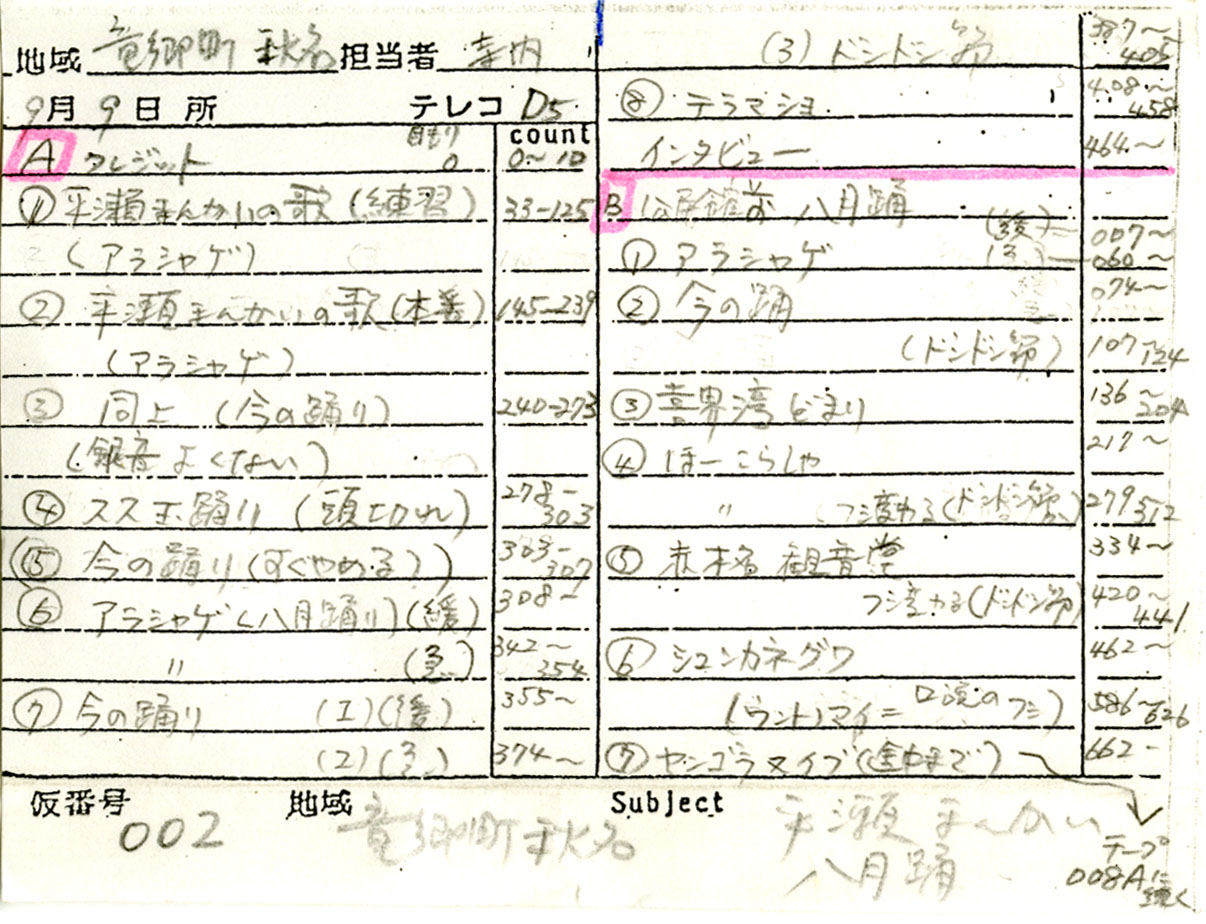 地域 竜郷町 秋名 担当者 寺内
9月 9日 所 テレコ D5
count
A クレジット 目もり 0 0~10
① 平瀬まんかいの歌 (練習) 33-125
(アラシャゲ)
② 平瀬まんかいの歌 (本番) 145-239
(アラシャゲ)
③ 同上 (今の踊り) 240-273
(録音よくない)
④ スス玉踊り (頭切れ) 278-303
⑤ 今の踊り (すぐやめる) 303-307
⑥ アラシャゲ (八月踊り) (緩) 308-
〃 (急) 342~354
⑦ 今の踊り (1) (緩) 355~
(2) (急) 374~
(3) ドンドン節 387~405
⑧ テラマショ 408~458
インタビュー 464~
B 公民館前 八月踊
① アラシャゲ (緩) 007~
(急) 060~
② 今の踊 074~
(ドンドン節) 107~124
③ 喜界湾どまり 136~204
④ ほーこらしゃ 217~
〃 フシ変わる (ドンドン節) 279 312
⑤ 赤木名観音堂 334~
フシ変わる (ドンドン節) 420~441
⑥ シュンカネグワ 462~
(ウントノマイ= 口説のフシ) 586~626
⑦ ヤンゴラヌイブ (途中まで) 662-
仮番号 002
地域 竜郷町秋名
Subject 平瀬まんかい
八月踊
テープ
008Aに
続く